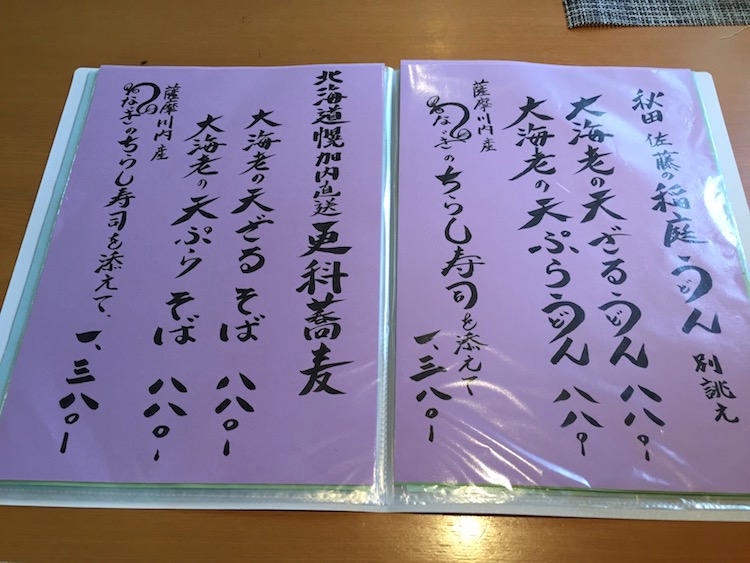 秋田 佐藤の稲庭うどん 別誂え
大海老の天ざるうどん 八八〇ー
大海老の天ぷらうどん 八八〇ー
薩摩川内産
うなぎのちらし寿司を添えて 一、三八〇ー
北海道幌加内直送 更科蕎麦
大海老の天ざるそば 八八〇ー
大海老の天ぷらそば 八八〇ー
薩摩川内産
うなぎのちらし寿司を添えて、 一、三八〇ー